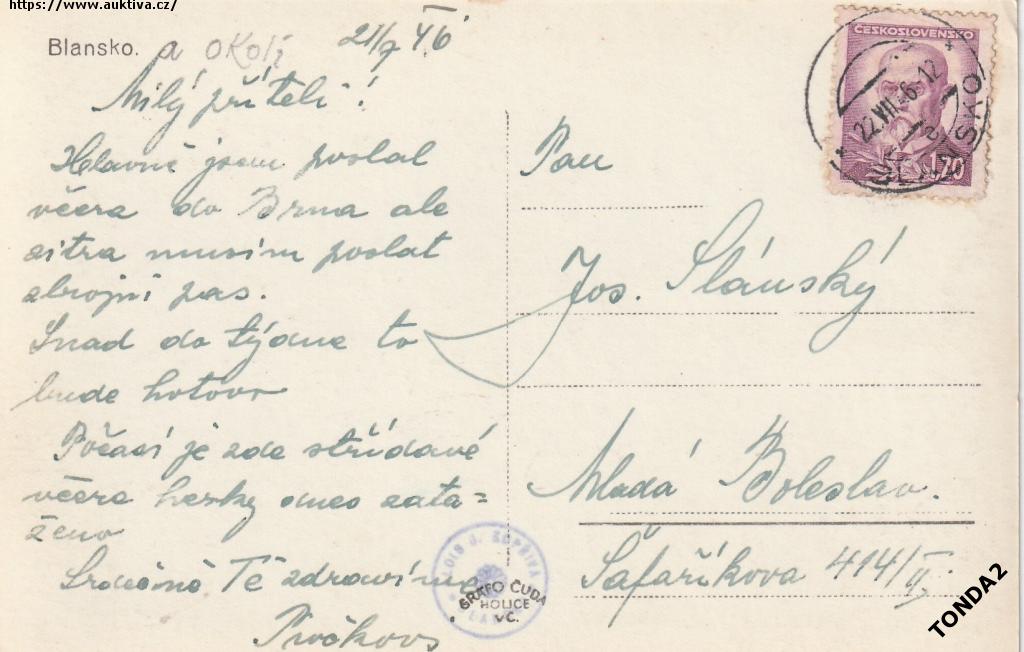 https://www.auktiva.cz/
Blansko. a okolí 21/7 46
Milý příteli!
Hlavně jsem poslal
včera do Brna ale
zítra musím poslat
zbrojní pas.
Snad do týdne to
bude hotovo
Počasí je zde střídavé
včera hezky dnes zata=
ženo
Srdečně Tě zdravíme
ČESKOSLOVENSKO
1,70
22.VII.46.12
BLANSKO
Pan
Jos. Slánský
Mladá Boleslav.
Šafaříkova 414/II.
GRAFO ČUDA
HOLICE
VČ.
TONDA2